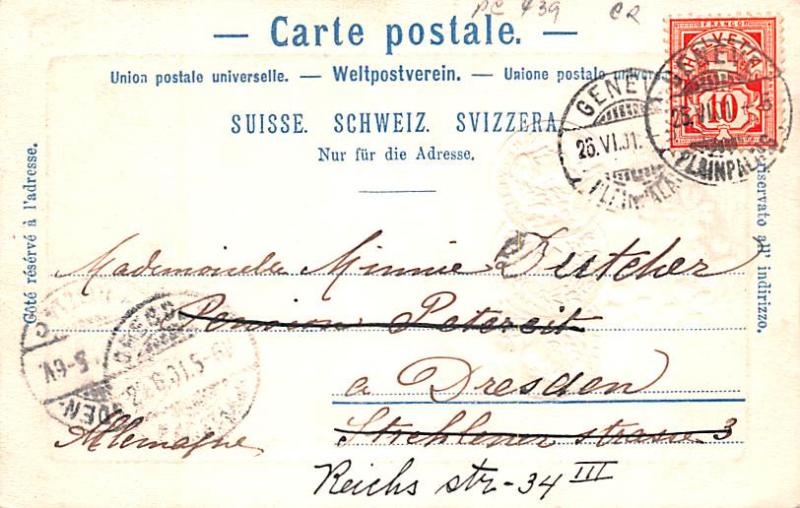 PC 439 CR
— Carte postale. —
Union postale universelle. — Weltpostverein. — Unione postale univers
SUISSE. SCHWEIZ. SVIZZERA.
Nur für die Adresse.
Côté réservé à l'adresse.
riservato all' indirizzo.
FRANCO
HELVETIA
10
GENEV
26.VI.01.
PLAINPALAIS
PLAINPALAIS
Mademoiselle Minnie Dutcher
Pension Petereit
a Dresden
Allemagne
Strehlener strasse 3
Reichs str-34 III